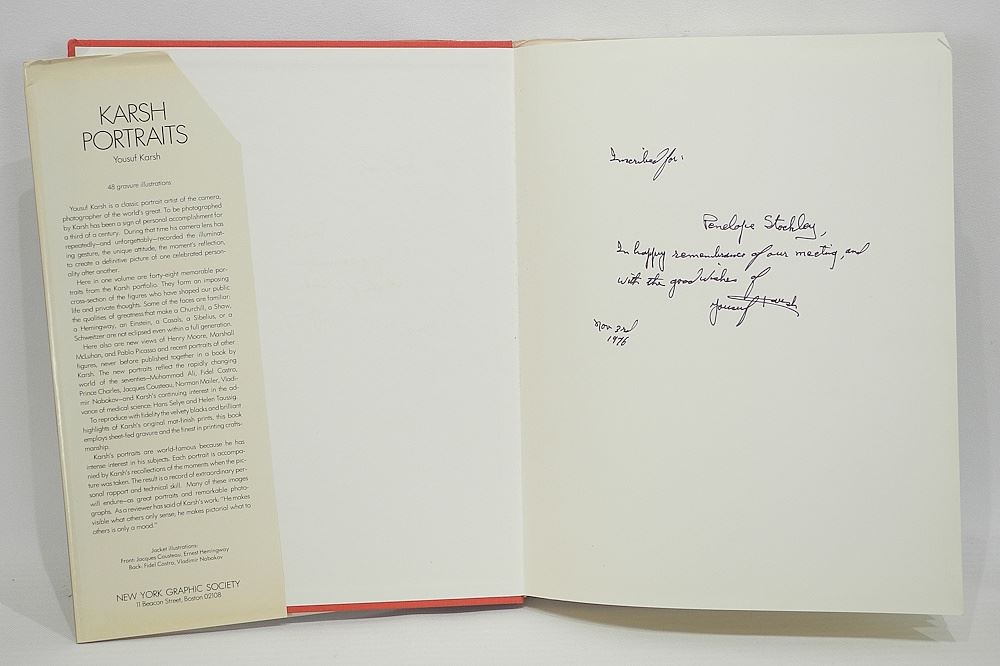 KARSH
PORTRAITS
Yousuf Karsh
48 gravure illustrations
Yousuf Karsh is a classic portrait artist of the camera,
photographer of the world's great. To be photographed
by Karsh has been a sign of personal accomplishment for
a third of a century. During that time his camera lens has
repeatedly—and unforgettably—recorded the illuminat-
ing gesture, the unique attitude, the moment's reflection,
to create a definitive picture of one celebrated person-
ality after another.
Here in one volume are forty-eight memorable por-
traits from the Karsh portfolio. They form an imposing
cross-section of the figures who have shaped our public
life and private thoughts. Some of the faces are familiar:
the qualities of greatness that make a Churchill, a Shaw,
a Hemingway, an Einstein, a Casals, a Sibelius, or a
Schweitzer are not eclipsed even within a full generation.
Here also are new views of Henry Moore, Marshall
McLuhan, and Pablo Picasso and recent portraits of other
figures, never before published together in a book by
Karsh. The new portraits reflect the rapidly changing
world of the seventies—Muhammad Ali, Fidel Castro,
Prince Charles, Jacques Cousteau, Norman Mailer, Vladi-
mir Nabokov—and Karsh's continuing interest in the ad-
vance of medical science: Hans Selye and Helen Taussig.
To reproduce with fidelity the velvety blacks and brilliant
highlights of Karsh's original mat-finish prints, this book
employs sheet-fed gravure and the finest in printing crafts-
manship.
Karsh's portraits are world-famous because he has
intense interest in his subjects. Each portrait is accompa-
nied by Karsh's recollections of the moments when the pic-
ture was taken. The result is a record of extraordinary per-
sonal rapport and technical skill. Many of these images
will endure—as great portraits and remarkable photo-
graphs. As a reviewer has said of Karsh's work: "He makes
visible what others only sense; he makes pictorial what to
others is only a mood."
Jacket illustrations:
Front: Jacques Cousteau, Ernest Hemingway
Back: Fidel Castro, Vladimir Nabokov
NEW YORK GRAPHIC SOCIETY
11 Beacon Street, Boston 02108
Inscribed for:
Penelope Stockley,
In happy remembrance of our meeting, and
with the good wishes of
Yousuf Karsh
Nov 3rd
1976